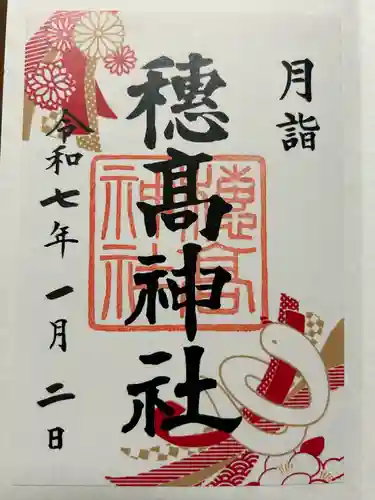 月詣
穂髙神社
令和七年一月二日
穂髙神社